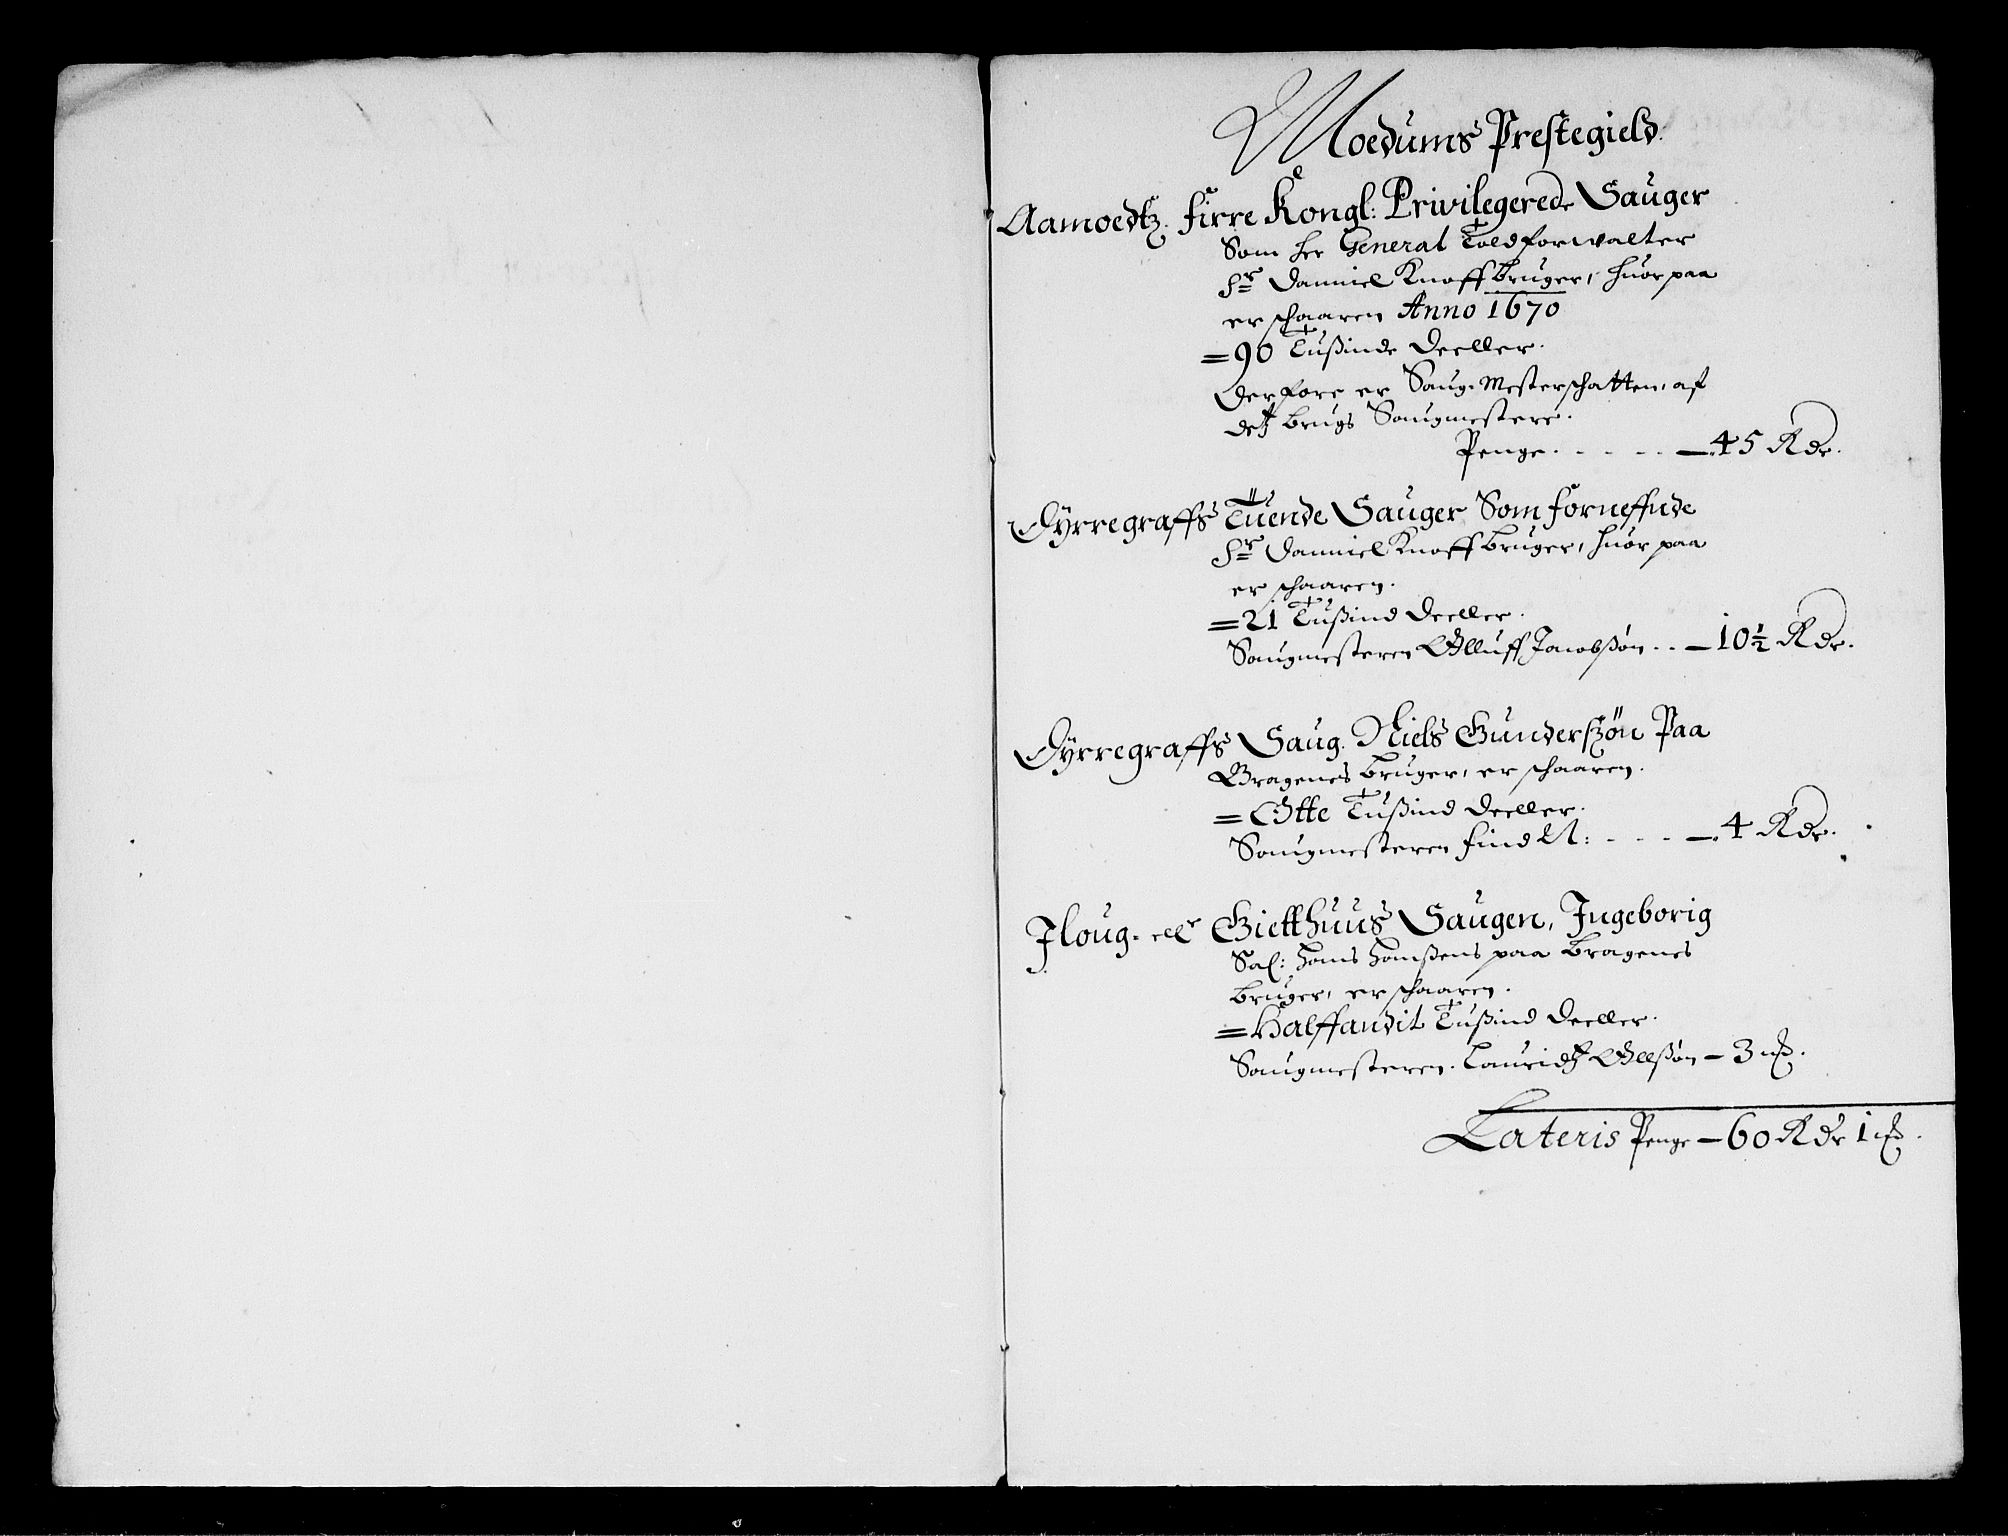 Moedums Prestegield.
Aamoedtz. firre Kongl: Privilegerede Sauger
Som her General Toldforwalter
Hr Danniel Knoff bruger, huor paa
er schaaren Anno 1670
= 90 Tußinde Deeller.
Derfore er Saug-Mesterschatten, af
detz brugs Saugmestere.
Penge. - - - - 45 Rdr.
Dÿrregraffs Tuende Sauger Som forneffnde
Hr Danniel Knoff bruger, huor paa
er schaaren.
= 21 Tußind Deeller.
Saugmesteren Olluff Jacobßøn . . — 10½ Rdr.
Dÿrregraffs Saug. Niels Gunderszøn Paa
Bragenes bruger, er schaaren.
= Otte Tußind Deeller.
Saugmesteren find N: - - - — 4 Rdr.
Floug- eller Gietthuus Saugen, Ingeborig
Sal: Hans Hanßens paa Bragenes
bruger, er schaaren.
= Halffandit Tußind Deeller.
Saugmesteren. Lauridtz Ollßøn — 3 mß.
Lateris Penge — 60 Rdr 1 mß.